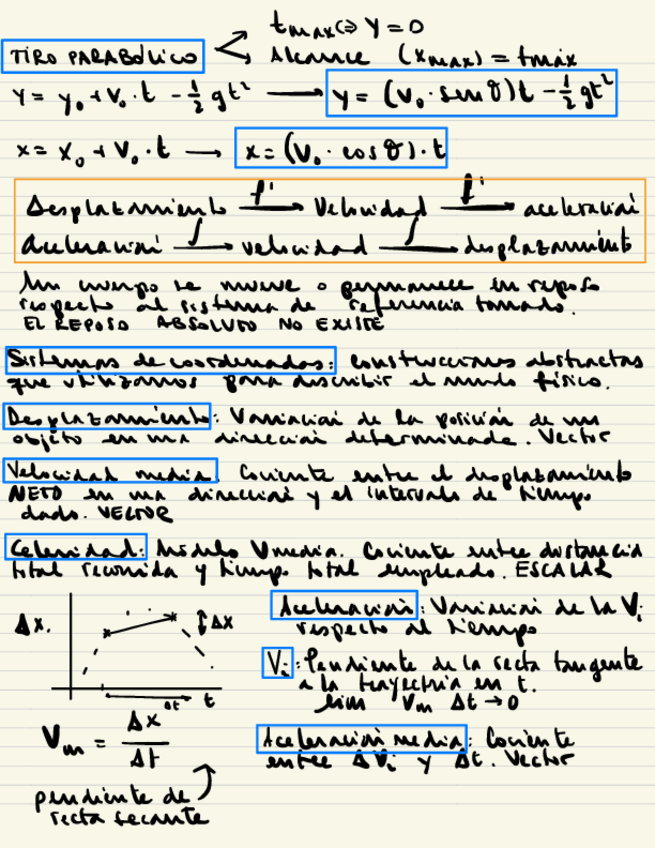 TIRO PARABÓLICO
tmax ⇔ y = 0
Alcance (xmax) = tmáx
y = y₀ + v₀ · t − ½ gt² → y = (v₀ · sen θ) t − ½ gt²
x = x₀ + v₀ · t → x = (v₀ · cos θ) · t
Desplazamiento f' → Velocidad f' → aceleración
Aceleración ∫ → velocidad ∫ → desplazamiento
Un cuerpo se mueve o permanece en reposo
respecto al sistema de referencia tomado.
EL REPOSO ABSOLUTO NO EXISTE
Sistemas de coordenadas: construcciones abstractas
que utilizamos para describir el mundo físico.
Desplazamiento: Variación de la posición de un
objeto en una dirección determinada. Vector
Velocidad media. Cociente entre el desplazamiento
NETO en una dirección y el intervalo de tiempo
dado. VECTOR
Celeridad: Módulo Vmedia. Cociente entre distancia
total recorrida y tiempo total empleado. ESCALAR
Δx.
Δx
Δt
t
Vm = Δx / Δt
pendiente de
recta secante
Aceleración: Variación de la Vi
respecto al tiempo
Vi: Pendiente de la recta tangente
a la trayectoria en t.
lim Vm Δt → 0
Aceleración media: Cociente
entre ΔVi y Δt. Vector